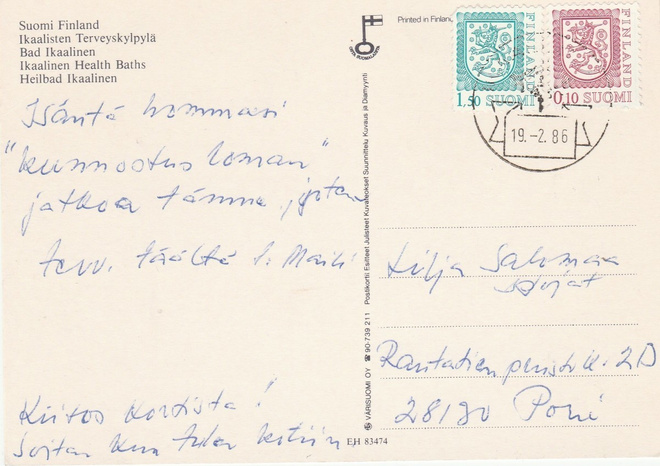 Suomi Finland
Ikaalisten Terveyskylpylä
Bad Ikaalinen
Ikaalinen Health Baths
Heilbad Ikaalinen
Printed in Finland
FINLAND
1,50 SUOMI
FINLAND
0,10 SUOMI
19.-2.86
Isäntä hommasi
"kunnostus loman"
jatkoa tämme, joten
terv. täältä t. Maili
Kiitos kortista!
Soitan kun tulen kotiin
Lilja Salomaa
Rantatien 2D
28180 Pori
VARISUOMI OY ☎ 90-739 211 Postikortit Esitteet Julisteet Kuvateokset Suunnittelu Kuvaus ja Diamyynti
EH 83474